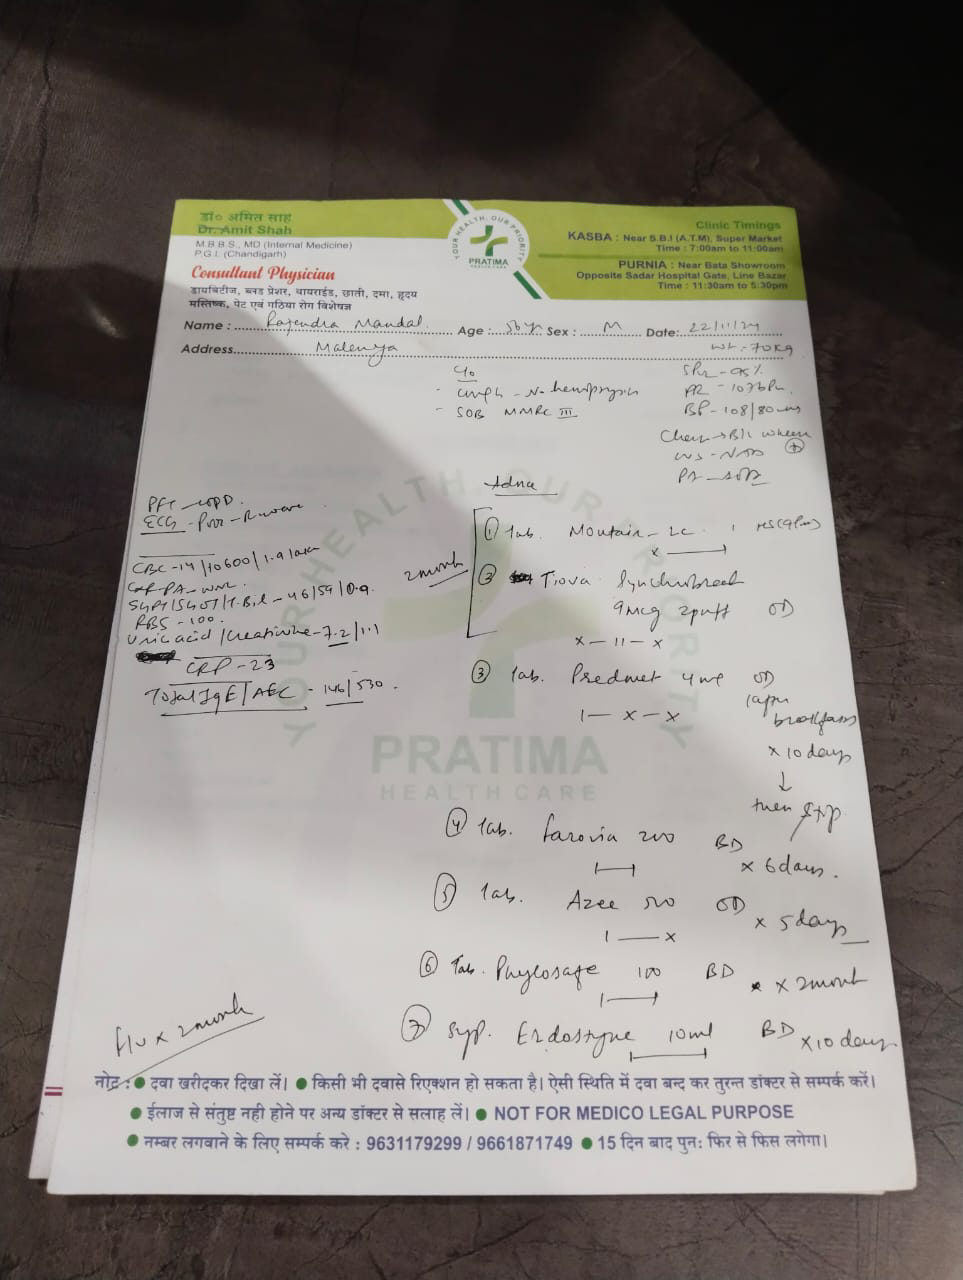 डॉ० अमित साह
Dr. Amit Shah
M.B.B.S., MD (Internal Medicine)
P.G.I. (Chandigarh)
Consultant Physician
डायबिटीज, ब्लड प्रेशर, थायराईड, छाती, दमा, हृदय
मस्तिष्क, पेट एवं गठिया रोग विशेषज्ञ
YOUR HEALTH, OUR PRIORITY
PRATIMA
HEALTH CARE
Clinic Timings
KASBA : Near S.B.I (A.T.M), Super Market
Time : 7:00am to 11:00am
PURNIA : Near Bata Showroom
Opposite Sadar Hospital Gate, Line Bazar
Time : 11:30am to 5:30pm
Name : Rajendra Mandal Age : 56 yr Sex : M Date: 22/11/24
Address Wt - 70kg
c/o
- cough - No hemoptysis
- SOB MMRC III
SPO2 - 95%
PR - 107 bPm
BP - 108/80
Chest → B/L wheeze
+
PFT - COPD.
ECG - Poor - R-wave
CBC - 14/10600/1.9
SGPT/SGOT/T.Bil - 46/59/0.9
RBS - 100
Uric acid/Creatinine - 7.2/1.1
CRP - 23
Total IgE/AEC - 146/530
2 month
① Tab. Montair-LC 1 HS (9 Pm)
x —
② Tiova Synchrobreath
9mcg 2 puff OD
x — 11 — x
③ Tab. Predmet 4 mg OD
1 — x — x
(after
breakfast
x 10 days
↓
then stop
④ Tab. Farovia 200 BD
x 6 days.
⑤ Tab. Azee 500 OD
x 5 days
1 — x
⑥ Tab. Phylosafe 100 BD
x 2 month
⑦ Syp. Erdostyne 10ml BD
x 10 days
F/U x 2 month
YOUR HEALTH, OUR PRIORITY
PRATIMA
HEALTH CARE
नोट : ● दवा खरीदकर दिखा लें। ● किसी भी दवासे रिएक्शन हो सकता है। ऐसी स्थिति में दवा बन्द कर तुरन्त डॉक्टर से सम्पर्क करें।
● ईलाज से संतुष्ट नही होने पर अन्य डॉक्टर से सलाह लें। ● NOT FOR MEDICO LEGAL PURPOSE
● नम्बर लगवाने के लिए सम्पर्क करे : 9631179299 / 9661871749 ● 15 दिन बाद पुनः फिर से फिस लगेगा।